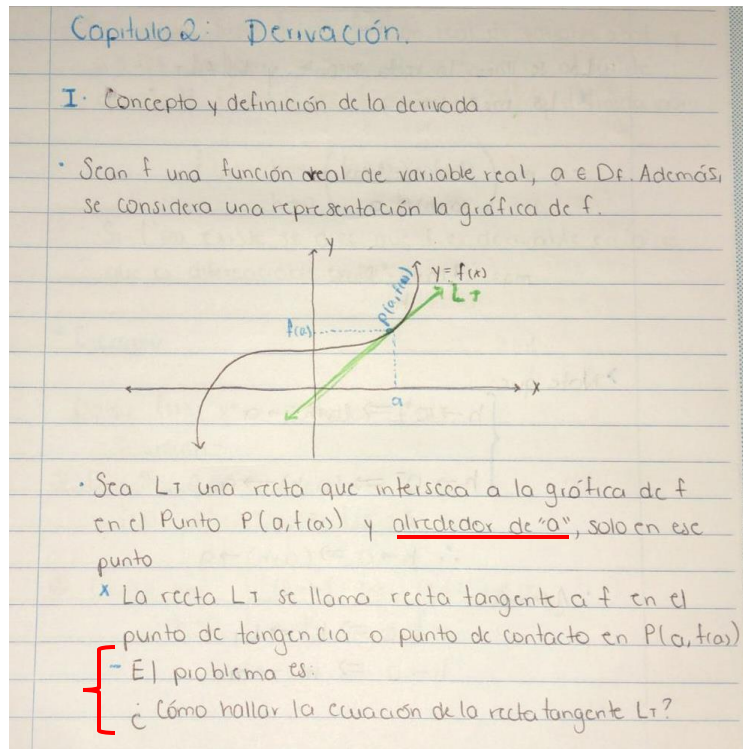 Capitulo 2: Derivación.
I. Concepto y definición de la derivada
· Sean f una función real de variable real, a ∈ Df. Además,
se considera una representación la gráfica de f.
y
y=f(x)
LT
P(a,f(a))
f(a)
x
a
· Sea LT una recta que interseca a la gráfica de f
en el Punto P(a,f(a)) y alrededor de "a", solo en ese
punto
x La recta LT se llama recta tangente a f en el
punto de tangencia o punto de contacto en P(a,f(a))
- El problema es:
¿ Cómo hallar la ecuación de la recta tangente LT?